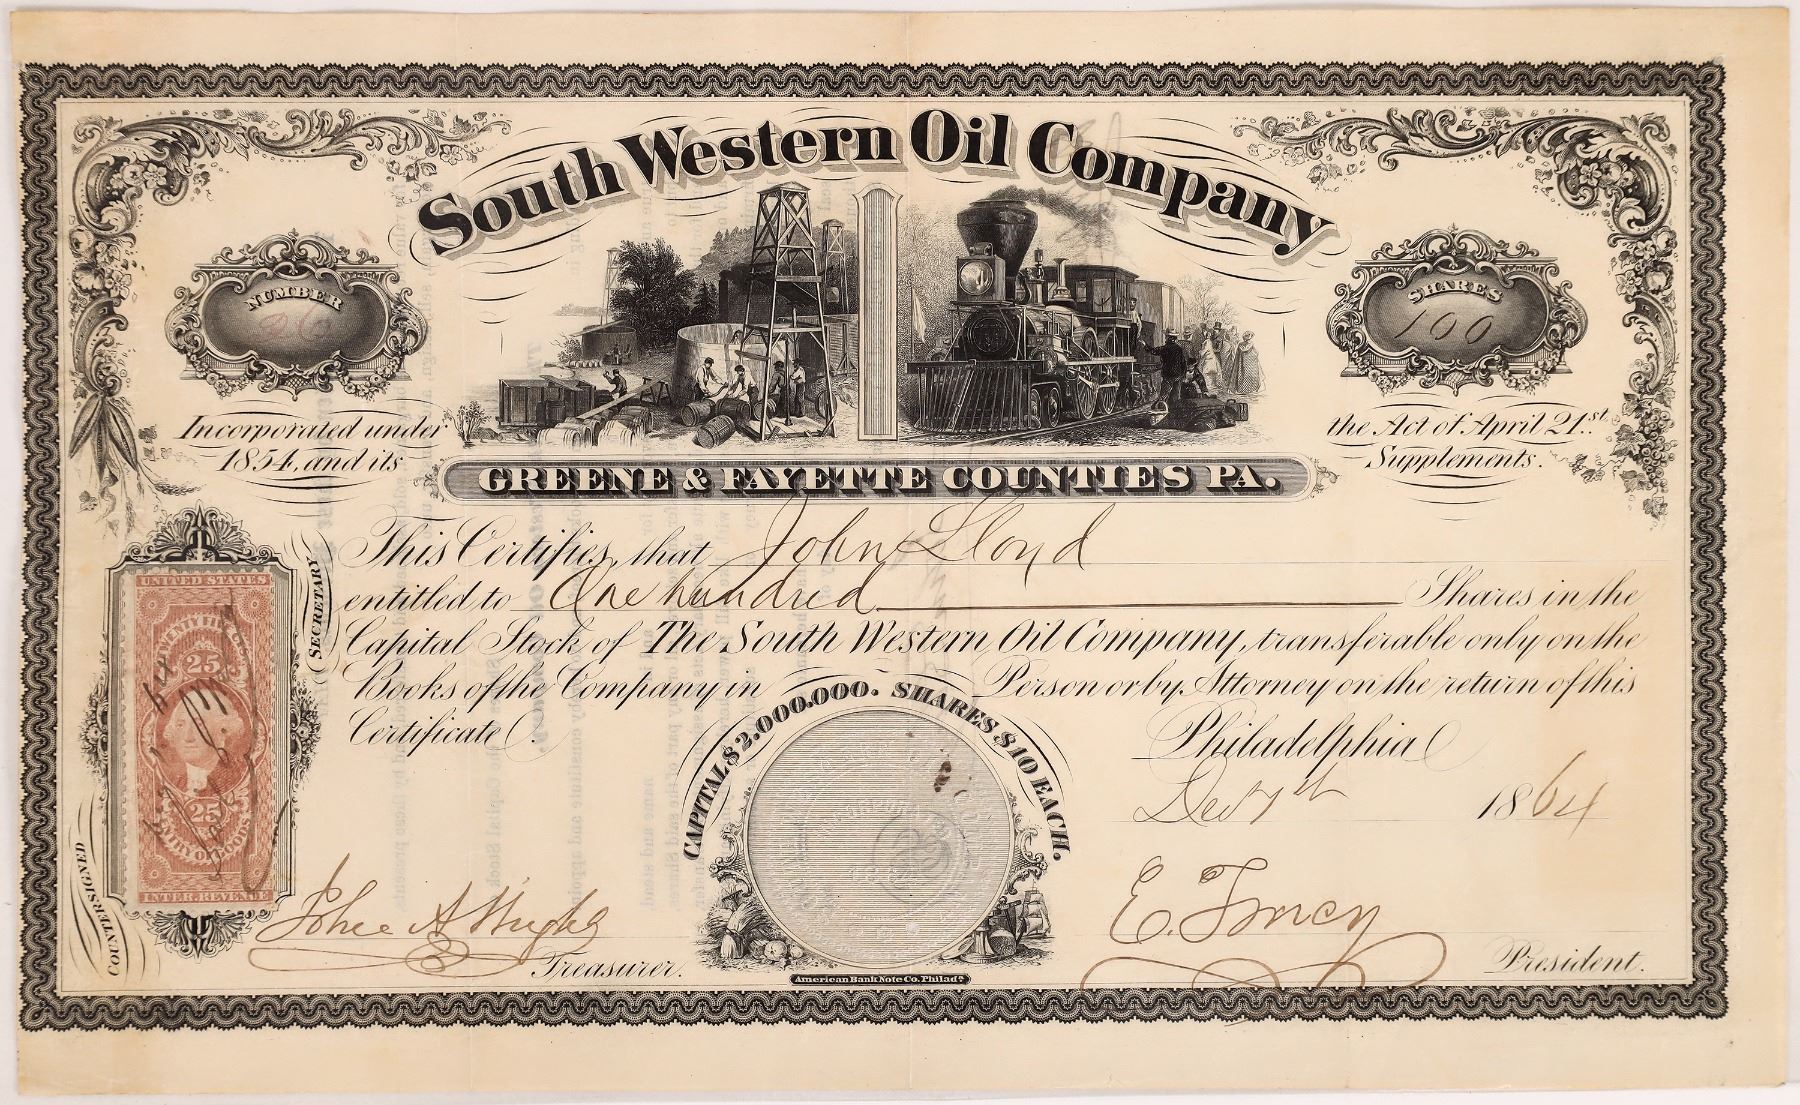 South Western Oil Company
NUMBER
26
SHARES
100
Incorporated under
1854, and its
the Act of April 21st.
Supplements.
GREENE & FAYETTE COUNTIES PA.
This Certifies, that John Lloyd
entitled to One hundred Shares in the
Capital Stock of The South Western Oil Company, transferable only on the
Books of the Company in Person or by Attorney on the return of this
Certificate.
CAPITAL $2,000,000. SHARES $10 EACH.
Philadelphia
Dec 7th 1864
COUNTERSIGNED
SECRETARY
UNITED STATES
TWENTY FIVE
25
25
INTER. REVENUE
Treasurer.
President.
American Bank Note Co. Philada.